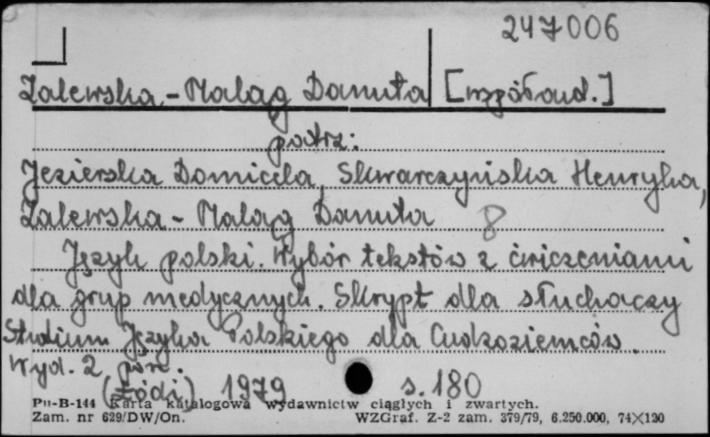 247006
Zalewska-Malag Danuta [współaut.]
patrz:
Jezierska Domicela, Skwarczyńska Henryka,
Zalewska-Malag Danuta 8
Język polski. Wybór tekstów z ćwiczeniami
dla grup medycznych. Skrypt dla słuchaczy
Studium Języka Polskiego dla Cudzoziemców.
Wyd. 2 pop.
(Łódź) 1979 s. 180
Pu-B-144 Karta katalogowa wydawnictw ciągłych i zwartych.
Zam. nr 629/DW/On. WZGraf. Z-2 zam. 379/79, 6.250.000, 74×120